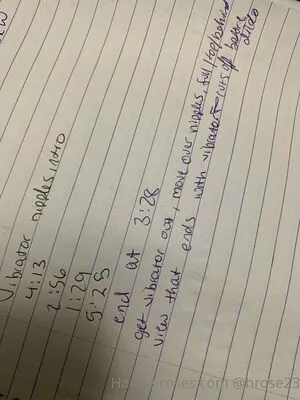 Vibrator nipples, intro
4:13
2:56
1:29
5:25
end at 3:28
get vibrator out, move over nipples, full/top/behind
view that ends with vibrator cuts of before
roses.com @hrose23